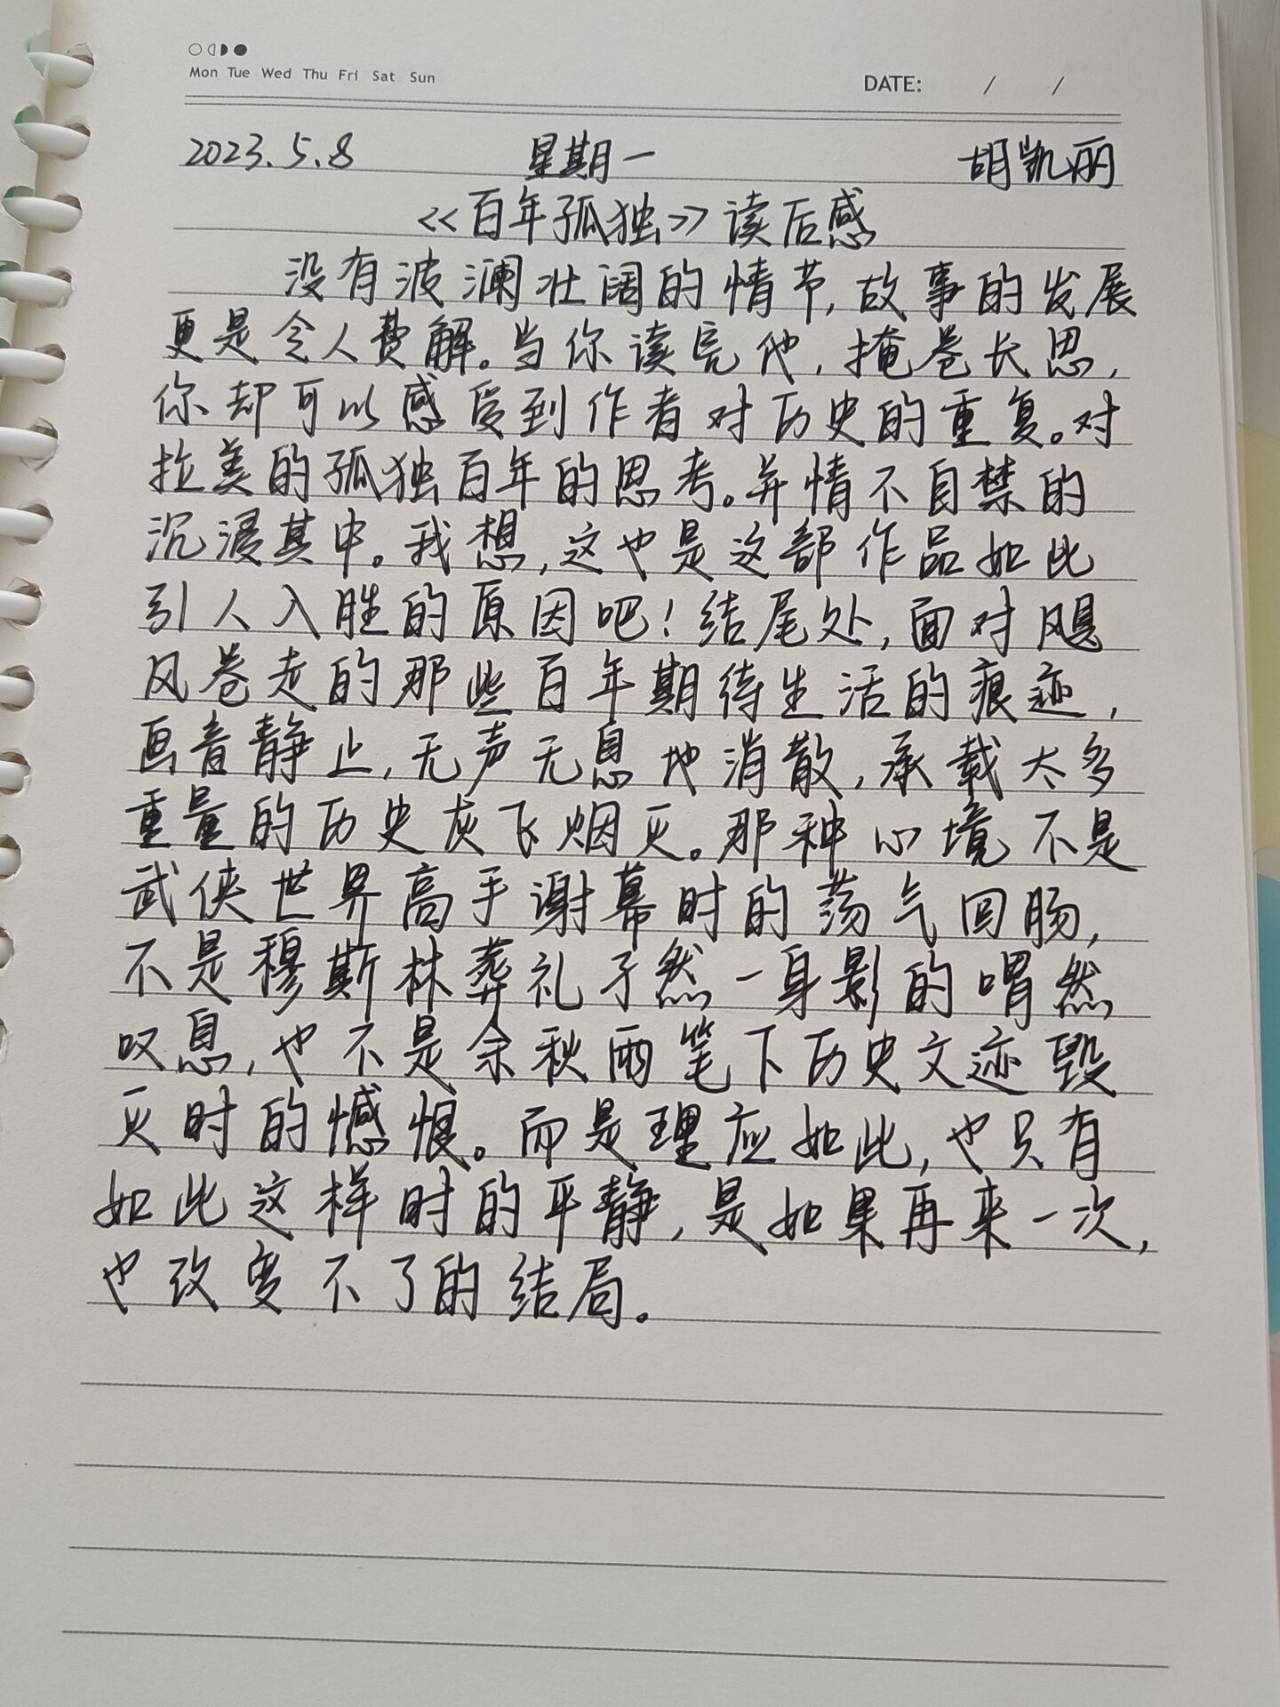 Mon Tue Wed Thu Fri Sat Sun
DATE: / /
2023.5.8 星期一 胡凯丽
<<百年孤独>>读后感
没有波澜壮阔的情节,故事的发展
更是令人费解。当你读完他,掩卷长思,
你却可以感受到作者对历史的重复。对
拉美的孤独百年的思考。并情不自禁的
沉浸其中。我想,这也是这部作品如此
引人入胜的原因吧!结尾处,面对飓
风卷走的那些百年期待生活的痕迹,
画音静止,无声无息地消散,承载太多
重量的历史灰飞烟灭。那种心境不是
武侠世界高手谢幕时的荡气回肠,
不是穆斯林葬礼孑然一身影的喟然
叹息,也不是余秋雨笔下历史文迹毁
灭时的憾恨。而是理应如此,也只有
如此这样时的平静,是如果再来一次,
也改变不了的结局。